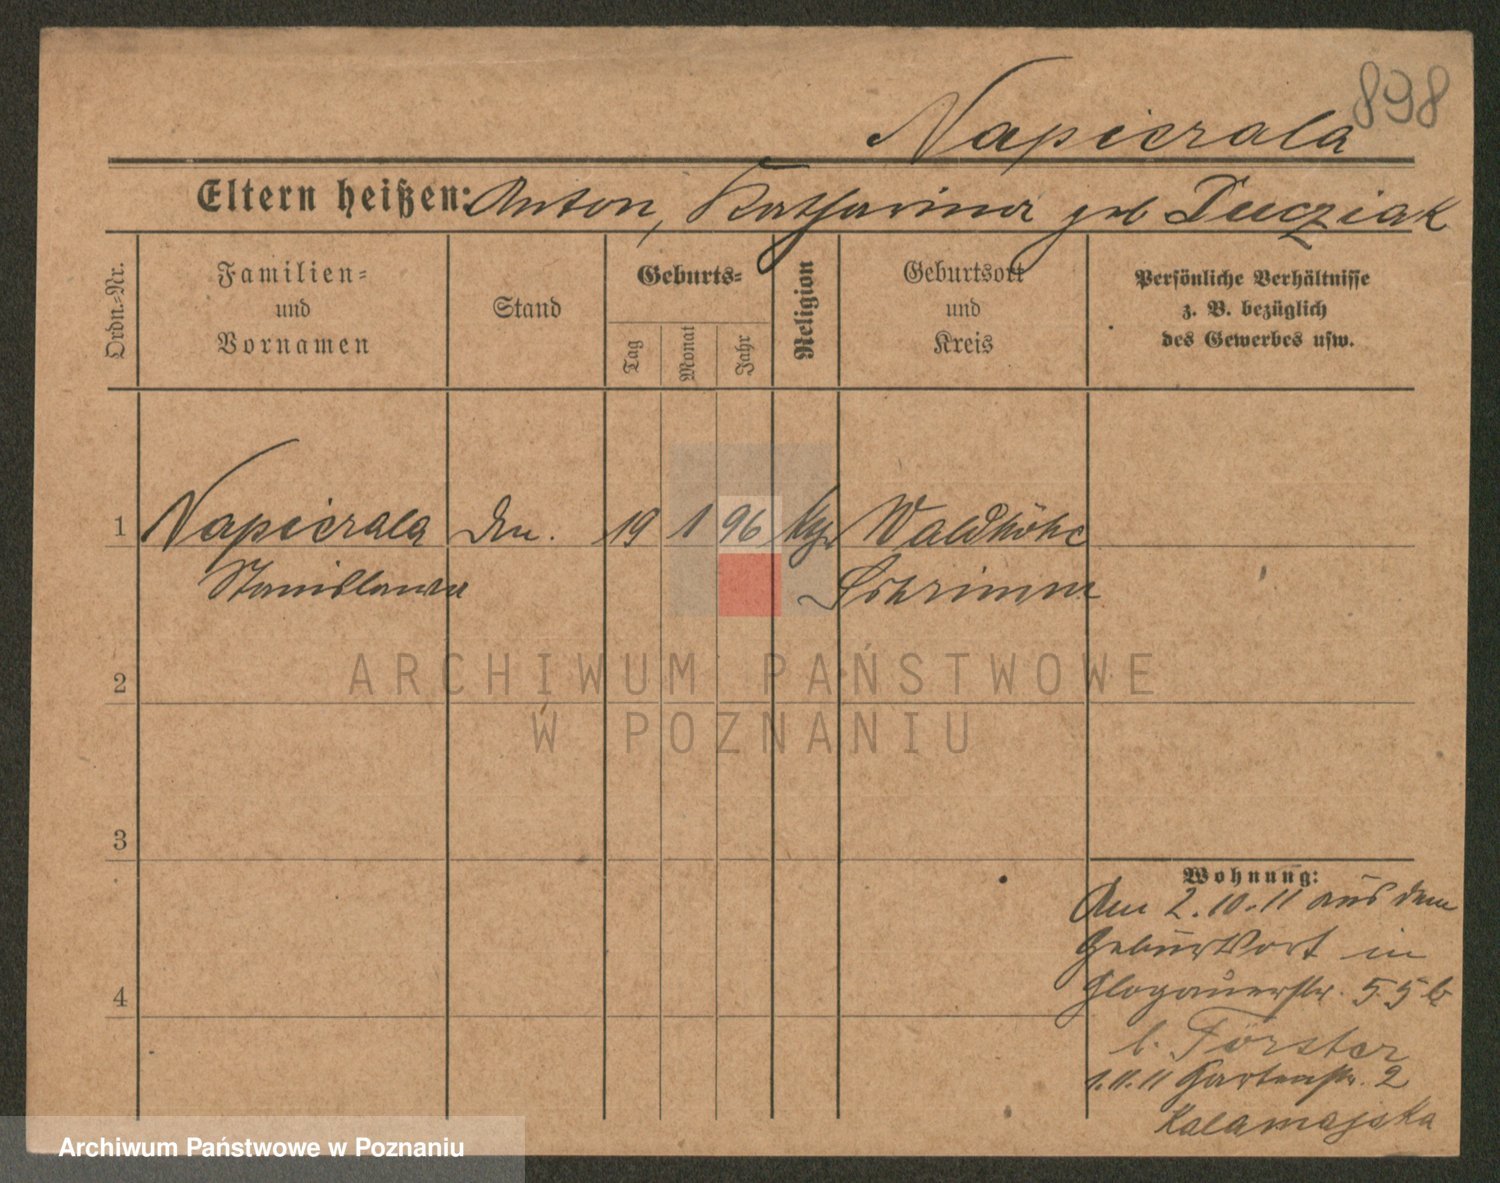 898
Napierala
Eltern heißen: Anton, Katharina geb Ducziak
Ordn.=Nr.
Familien=
und
Vornamen
Stand
Geburts=
Tag
Monat
Jahr
Religion
Geburtsort
und
Kreis
Persönliche Verhältnisse
z. B. bezüglich
des Gewerbes usw.
1 Napierala 19 1 96 Waldhöhe
Stanislawa Schrimm
ARCHIWUM PAŃSTWOWE
2
W POZNANIU
3
Wohnung:
Am 2.10.11 aus dem
Geburtsort in
4 Glogauerstr. 55b
b. Förster
1.11.11 Gartenstr. 2
Kalamajska
Archiwum Państwowe w Poznaniu